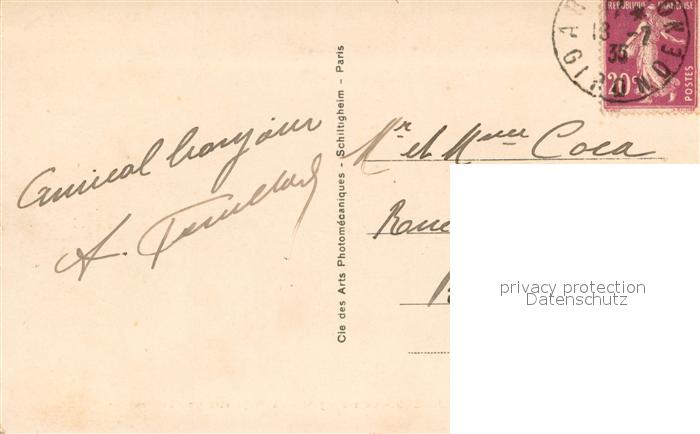 Amical bonjour
A.
Cie des Arts Photomécaniques - Schiltigheim - Paris
REPUBLIQUE FRANÇAISE
20 c
POSTES
18 -7
35
GIRONDE
Mr et Mme Coca
privacy protection
Datenschutz